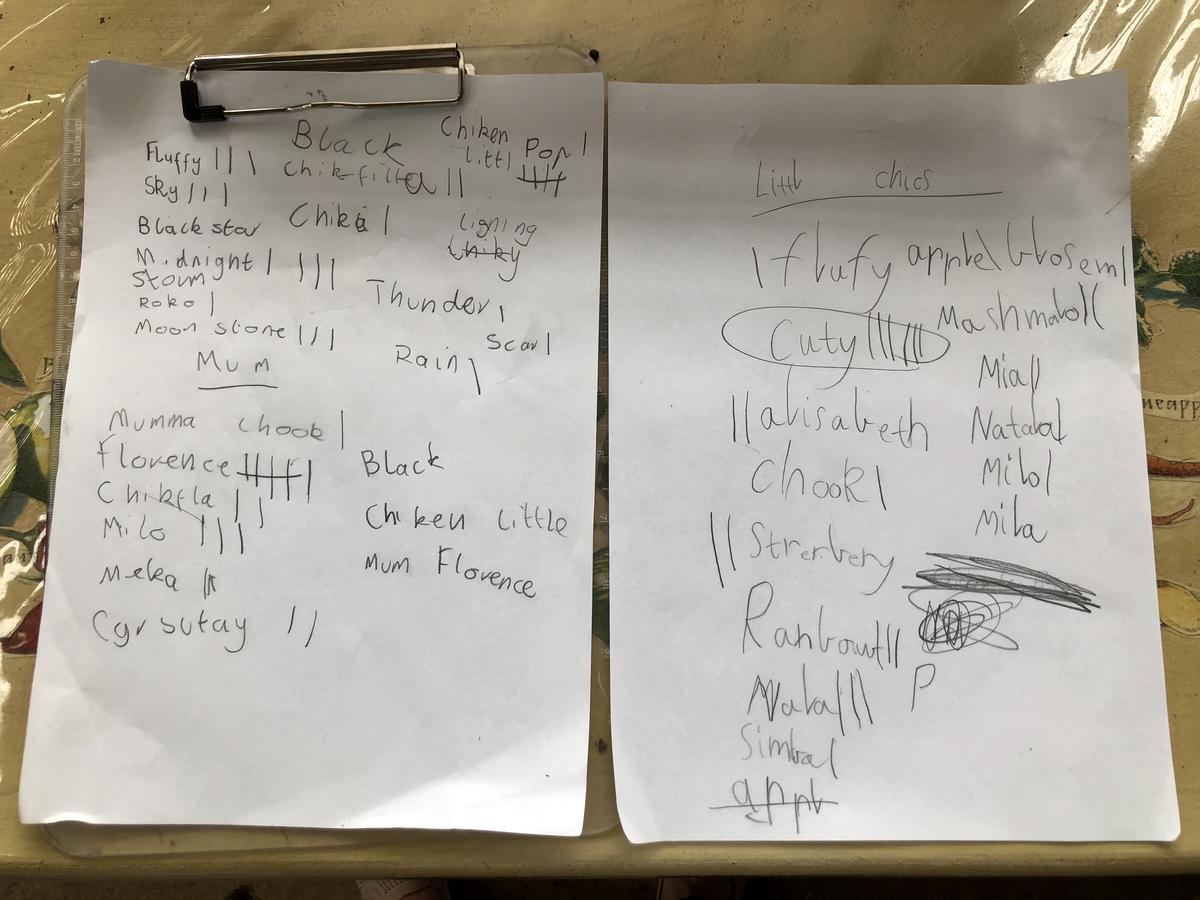 Black
Chiken
Littl
Pop |
Fluffy |||
Chik-filla ||
Sky |||
Black star
Chika |
Ligning
Chiky
Midnight |
Stoum |||
Roko |
Thunder |
Moon stone |||
Scar |
Rain |
Mum
Mumma chook |
Florence
Black
Chikfla ||
Chiken Little
Milo |||
Mum Florence
Meka ||
Cgrsutay ||
Littl chics
| flufy
apple | blosem |
Cuty
Mashmalo ||
Mia ||
|| alisabeth
Natala |
Chook |
Milo |
Mila
|| Strerbery
Ranbow
P
Nala |||
Simba |
appl